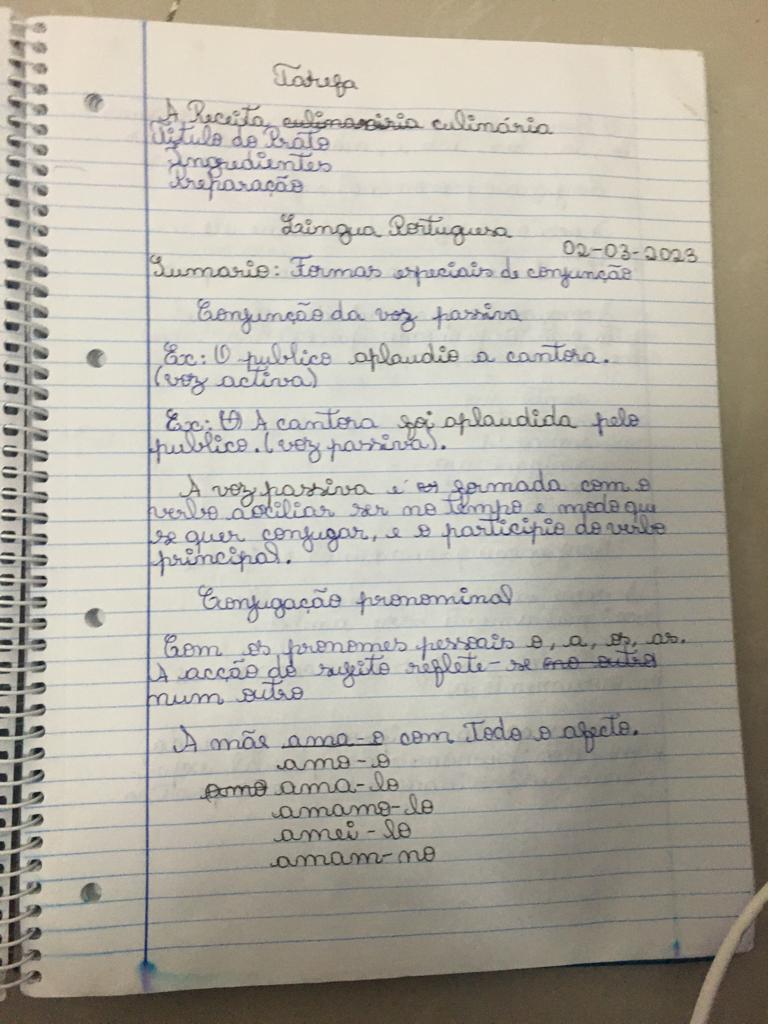 Tarefa
A Receita culinaria culinária
Titulo do Prato
Ingredientes
Preparação
Língua Portuguesa
02-03-2023
Sumario: Formas especiais de conjunção
Conjunção da voz passiva
Ex: O publico aplaudio a cantora.
(voz activa)
Ex: A cantora foi aplaudida pelo
publico. (voz passiva).
A voz passiva é formada com o
verbo auxiliar ser no tempo e modo que
se quer conjugar, e o participio do verbo
principal.
Conjugação pronominal
Com os pronomes pessoais o, a, os, as.
A acção do sujeito reflete-se no outro
num outro
A mãe ama-o com todo o afecto.
amo-o
amo ama-lo
amamo-lo
amei-lo
amam-no